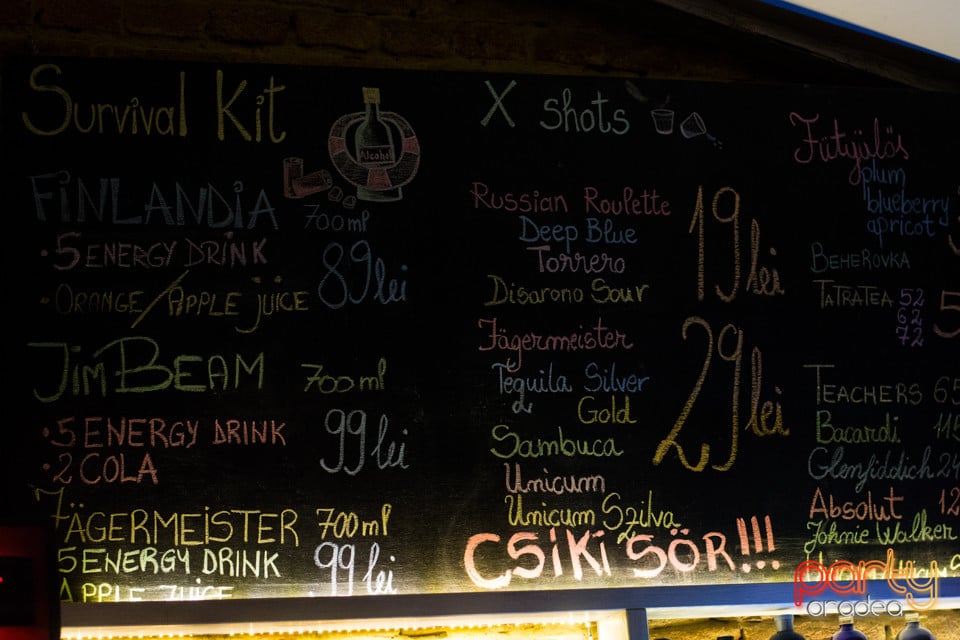 Survival Kit
Alcohol
FINLANDIA 700ml
• 5 ENERGY DRINK 89 lei
• ORANGE/APPLE JUICE
JIM BEAM 700ml
• 5 ENERGY DRINK 99 lei
• 2 COLA
JÄGERMEISTER 700ml
5 ENERGY DRINK 99 lei
APPLE JUICE
X shots
Russian Roulette 19 lei
Deep Blue
Torrero
Disarono Sour
Jägermeister 29 lei
Tequila Silver
& Gold
Sambuca
Unicum
Unicum Szilva
CSIKI SÖR!!!
Fütyülős
plum
blueberry
apricot
BEHEROVKA
TATRATEA 52
62
72
TEACHERS
Bacardi
Glenfiddich
Absolut
Johnie Walker
party
oradea